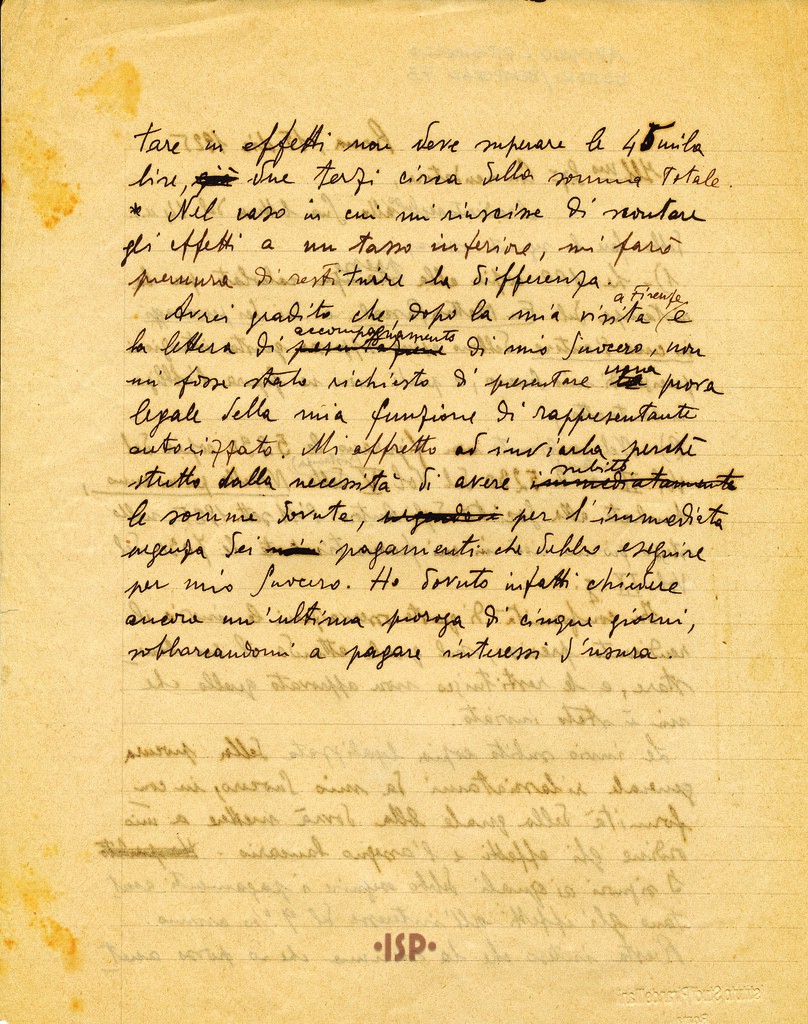 tare in effetti non deve superare le 45 mila
lire, già due terzi circa della somma totale.
* Nel caso in cui mi riuscisse di scontare
gli effetti a un tasso inferiore, mi farò
premura di restituire la differenza.
Avrei gradito che, dopo la mia visita a Firenze e
la lettera di presentazione accompagnamento di mio suocero, non
mi fosse stato richiesto di presentare la una prova
legale della mia funzione di rappresentante
autorizzato. Mi affretto ad inviarla perchè
stretto dalla necessità di avere immediatamente subito
le somme dovute, per l'immediata
urgenza dei miei pagamenti che debbo eseguire
per mio suocero. Ho dovuto infatti chiedere
ancora un'ultima proroga di cinque giorni,
sobbarcandomi a pagare interessi d'usura.
·ISP·